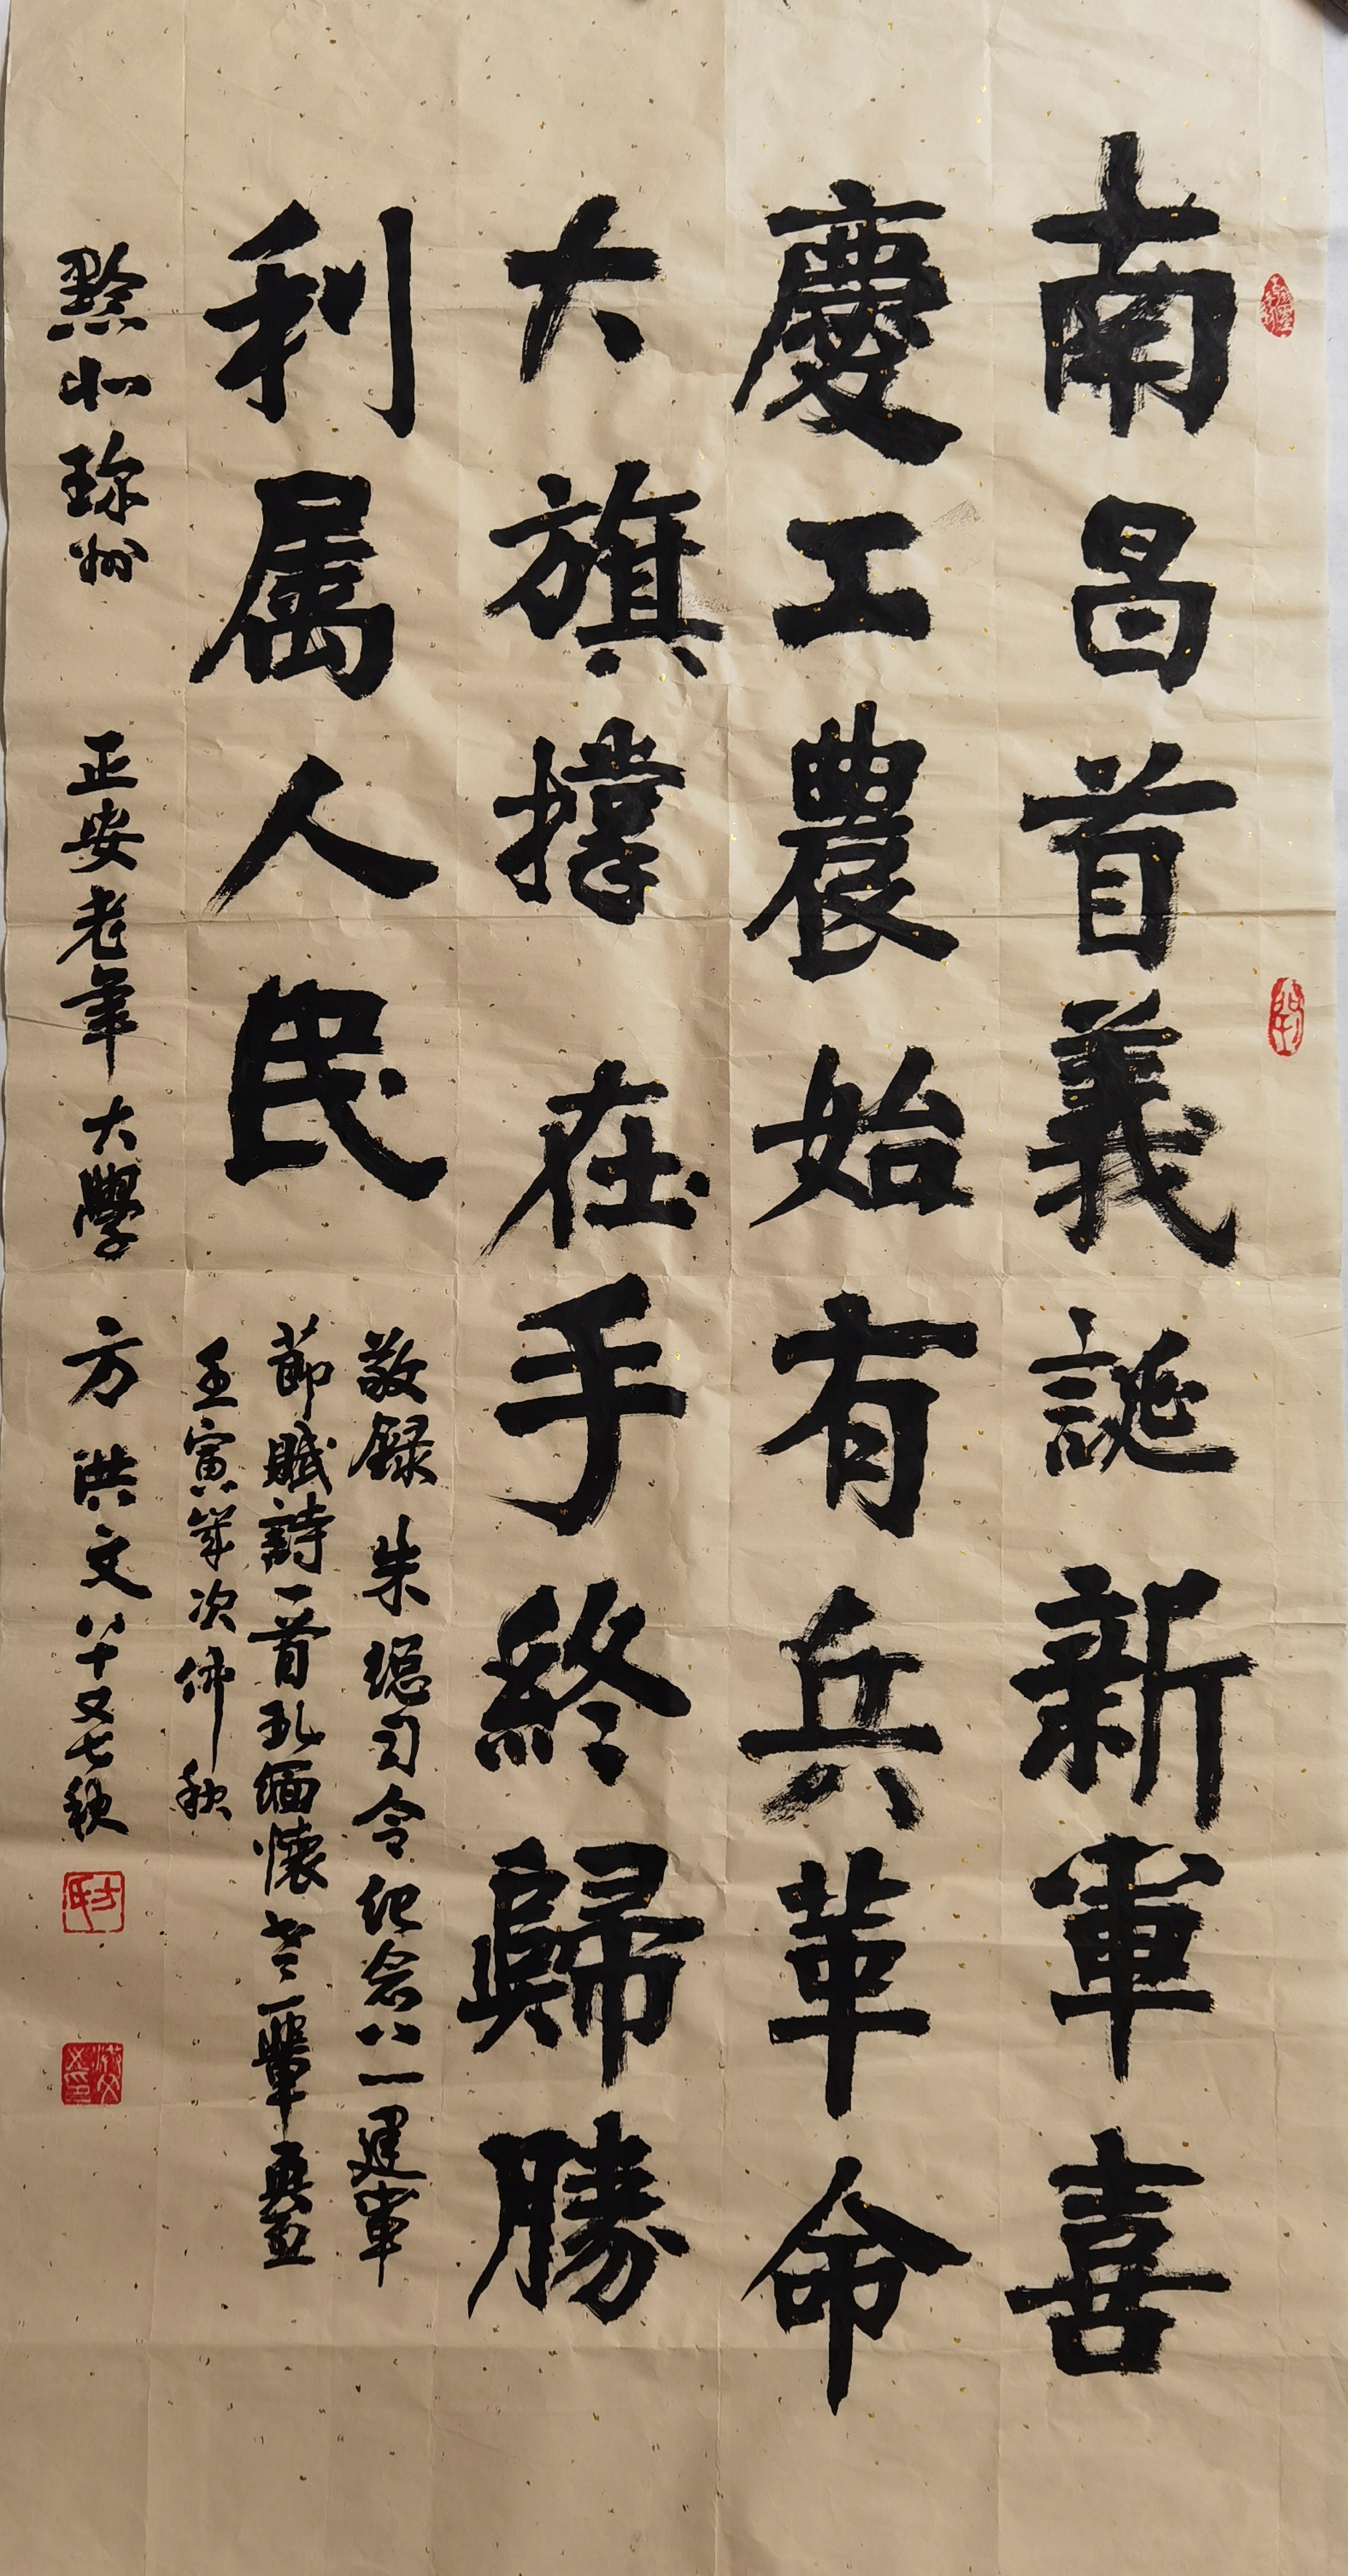 南昌首義誕新軍喜
慶工農始有兵革命
大旗撑在手終歸勝
利属人民
敬録朱總司令纪念八一建軍
節賦詩一首 缅懷老一輩
壬寅年次仲秋
黔北珍州 正安老年大學 方洪文 八十又七秋